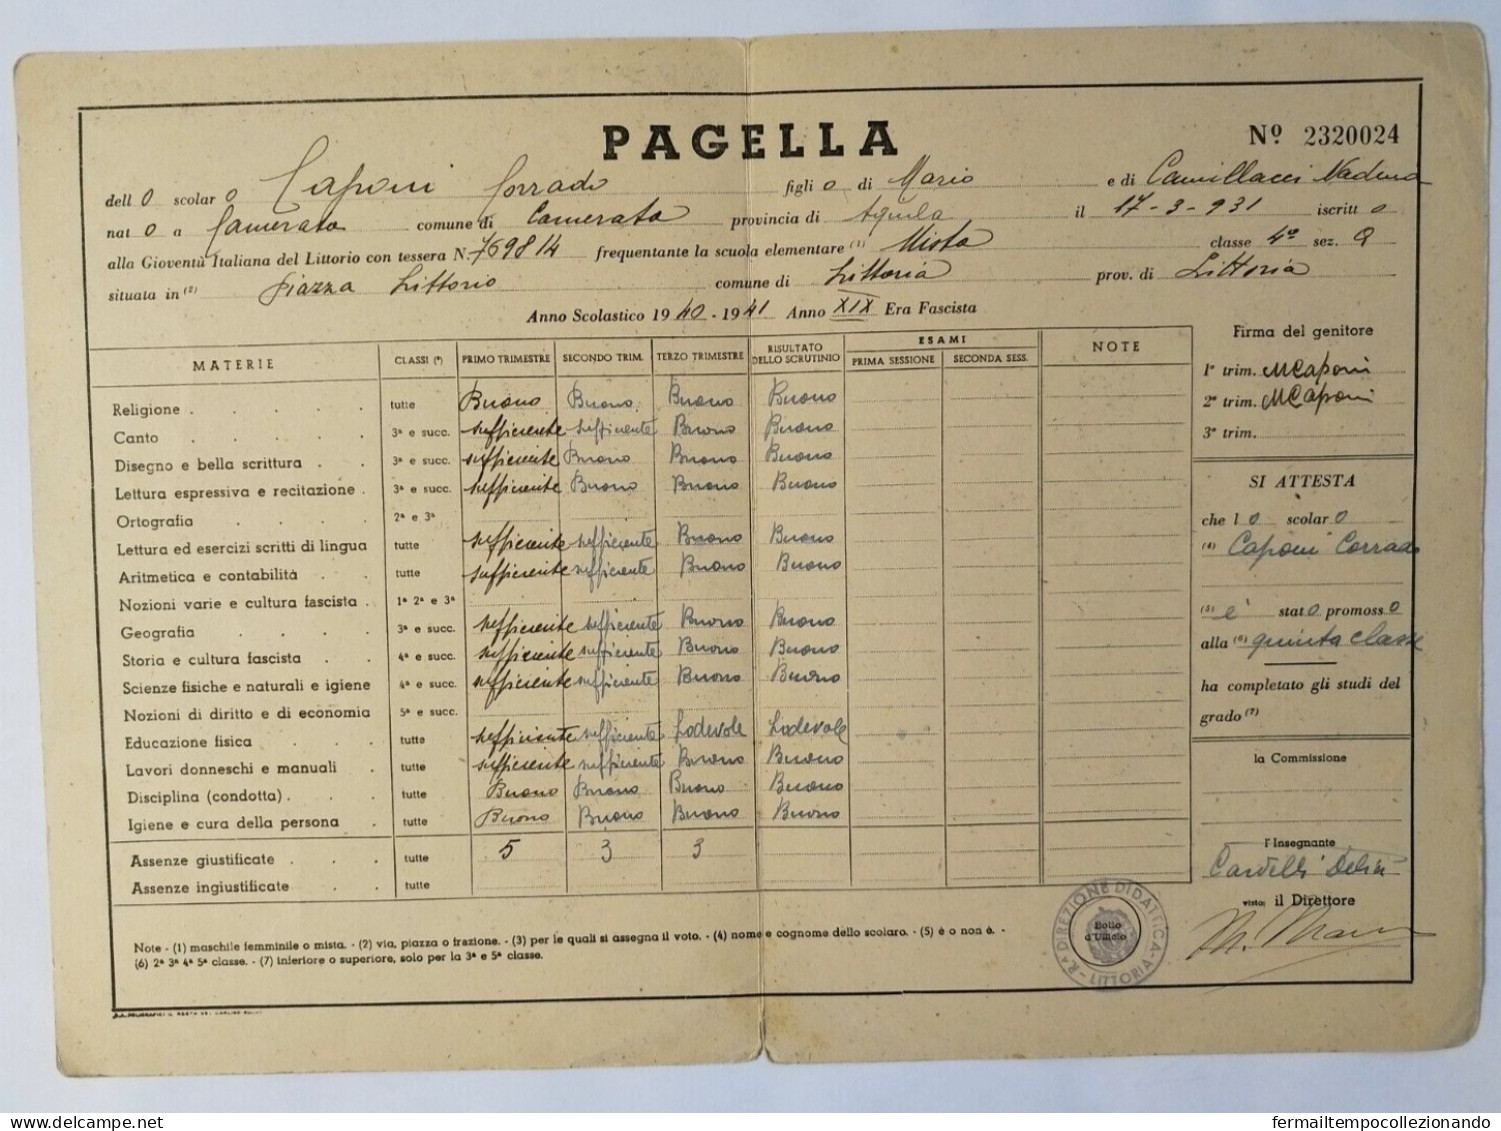 PAGELLA
Nº 2320024
dell o scolar o Caponi Corrado figli o di Mario e di Camillacci
nat o a Camerata comune di Camerata provincia di Aquila il 17-3-931 iscritt o
alla Gioventù Italiana del Littorio con tessera N. 769814 frequentante la scuola elementare (1) Mista classe 4ª sez.
situata in (2) piazza Littorio comune di Littoria prov. di Littoria
Anno Scolastico 1940-1941 Anno XIX Era Fascista
MATERIE CLASSI (*) PRIMO TRIMESTRE SECONDO TRIM. TERZO TRIMESTRE RISULTATO DELLO SCRUTINIO ESAMI PRIMA SESSIONE SECONDA SESS. NOTE
Religione tutte Buono Buono Buono Buono
Canto 3ª e succ. sufficiente sufficiente Buono Buono
Disegno e bella scrittura 3ª e succ. sufficiente Buono Buono Buono
Lettura espressiva e recitazione 3ª e succ. sufficiente Buono Buono Buono
Ortografia 2ª e 3ª
Lettura ed esercizi scritti di lingua tutte sufficiente sufficiente Buono Buono
Aritmetica e contabilità tutte sufficiente sufficiente Buono Buono
Nozioni varie e cultura fascista 1ª 2ª e 3ª
Geografia 3ª e succ. sufficiente sufficiente Buono Buono
Storia e cultura fascista 4ª e succ. sufficiente sufficiente Buono Buono
Scienze fisiche e naturali e igiene 4ª e succ. sufficiente sufficiente Buono Buono
Nozioni di diritto e di economia 5ª e succ.
Educazione fisica tutte sufficiente sufficiente Lodevole Lodevole
Lavori donneschi e manuali tutte sufficiente sufficiente Buono Buono
Disciplina (condotta) tutte Buono Buono Buono Buono
Igiene e cura della persona tutte Buono Buono Buono Buono
Assenze giustificate tutte 5 3 3
Assenze ingiustificate tutte
Note - (1) maschile femminile o mista. - (2) via, piazza o frazione. - (3) per le quali si assegna il voto. - (4) nome e cognome dello scolaro. - (5) è o non è. -
(6) 2ª 3ª 4ª 5ª classe. - (7) inferiore o superiore, solo per la 3ª e 5ª classe.
Firma del genitore
1º trim. MCaponi
2º trim. MCaponi
3º trim.
SI ATTESTA
che l o scolar o
(4) Caponi Corrado
(5) è stat o promoss o
alla (6) quinta classe
ha completato gli studi del
grado (7)
la Commissione
l'Insegnante
visto: il Direttore
Rª DIREZIONE DIDATTICA - LITTORIA
Bollo
d'Ufficio
fermailtempocollezionando
delcampe.net